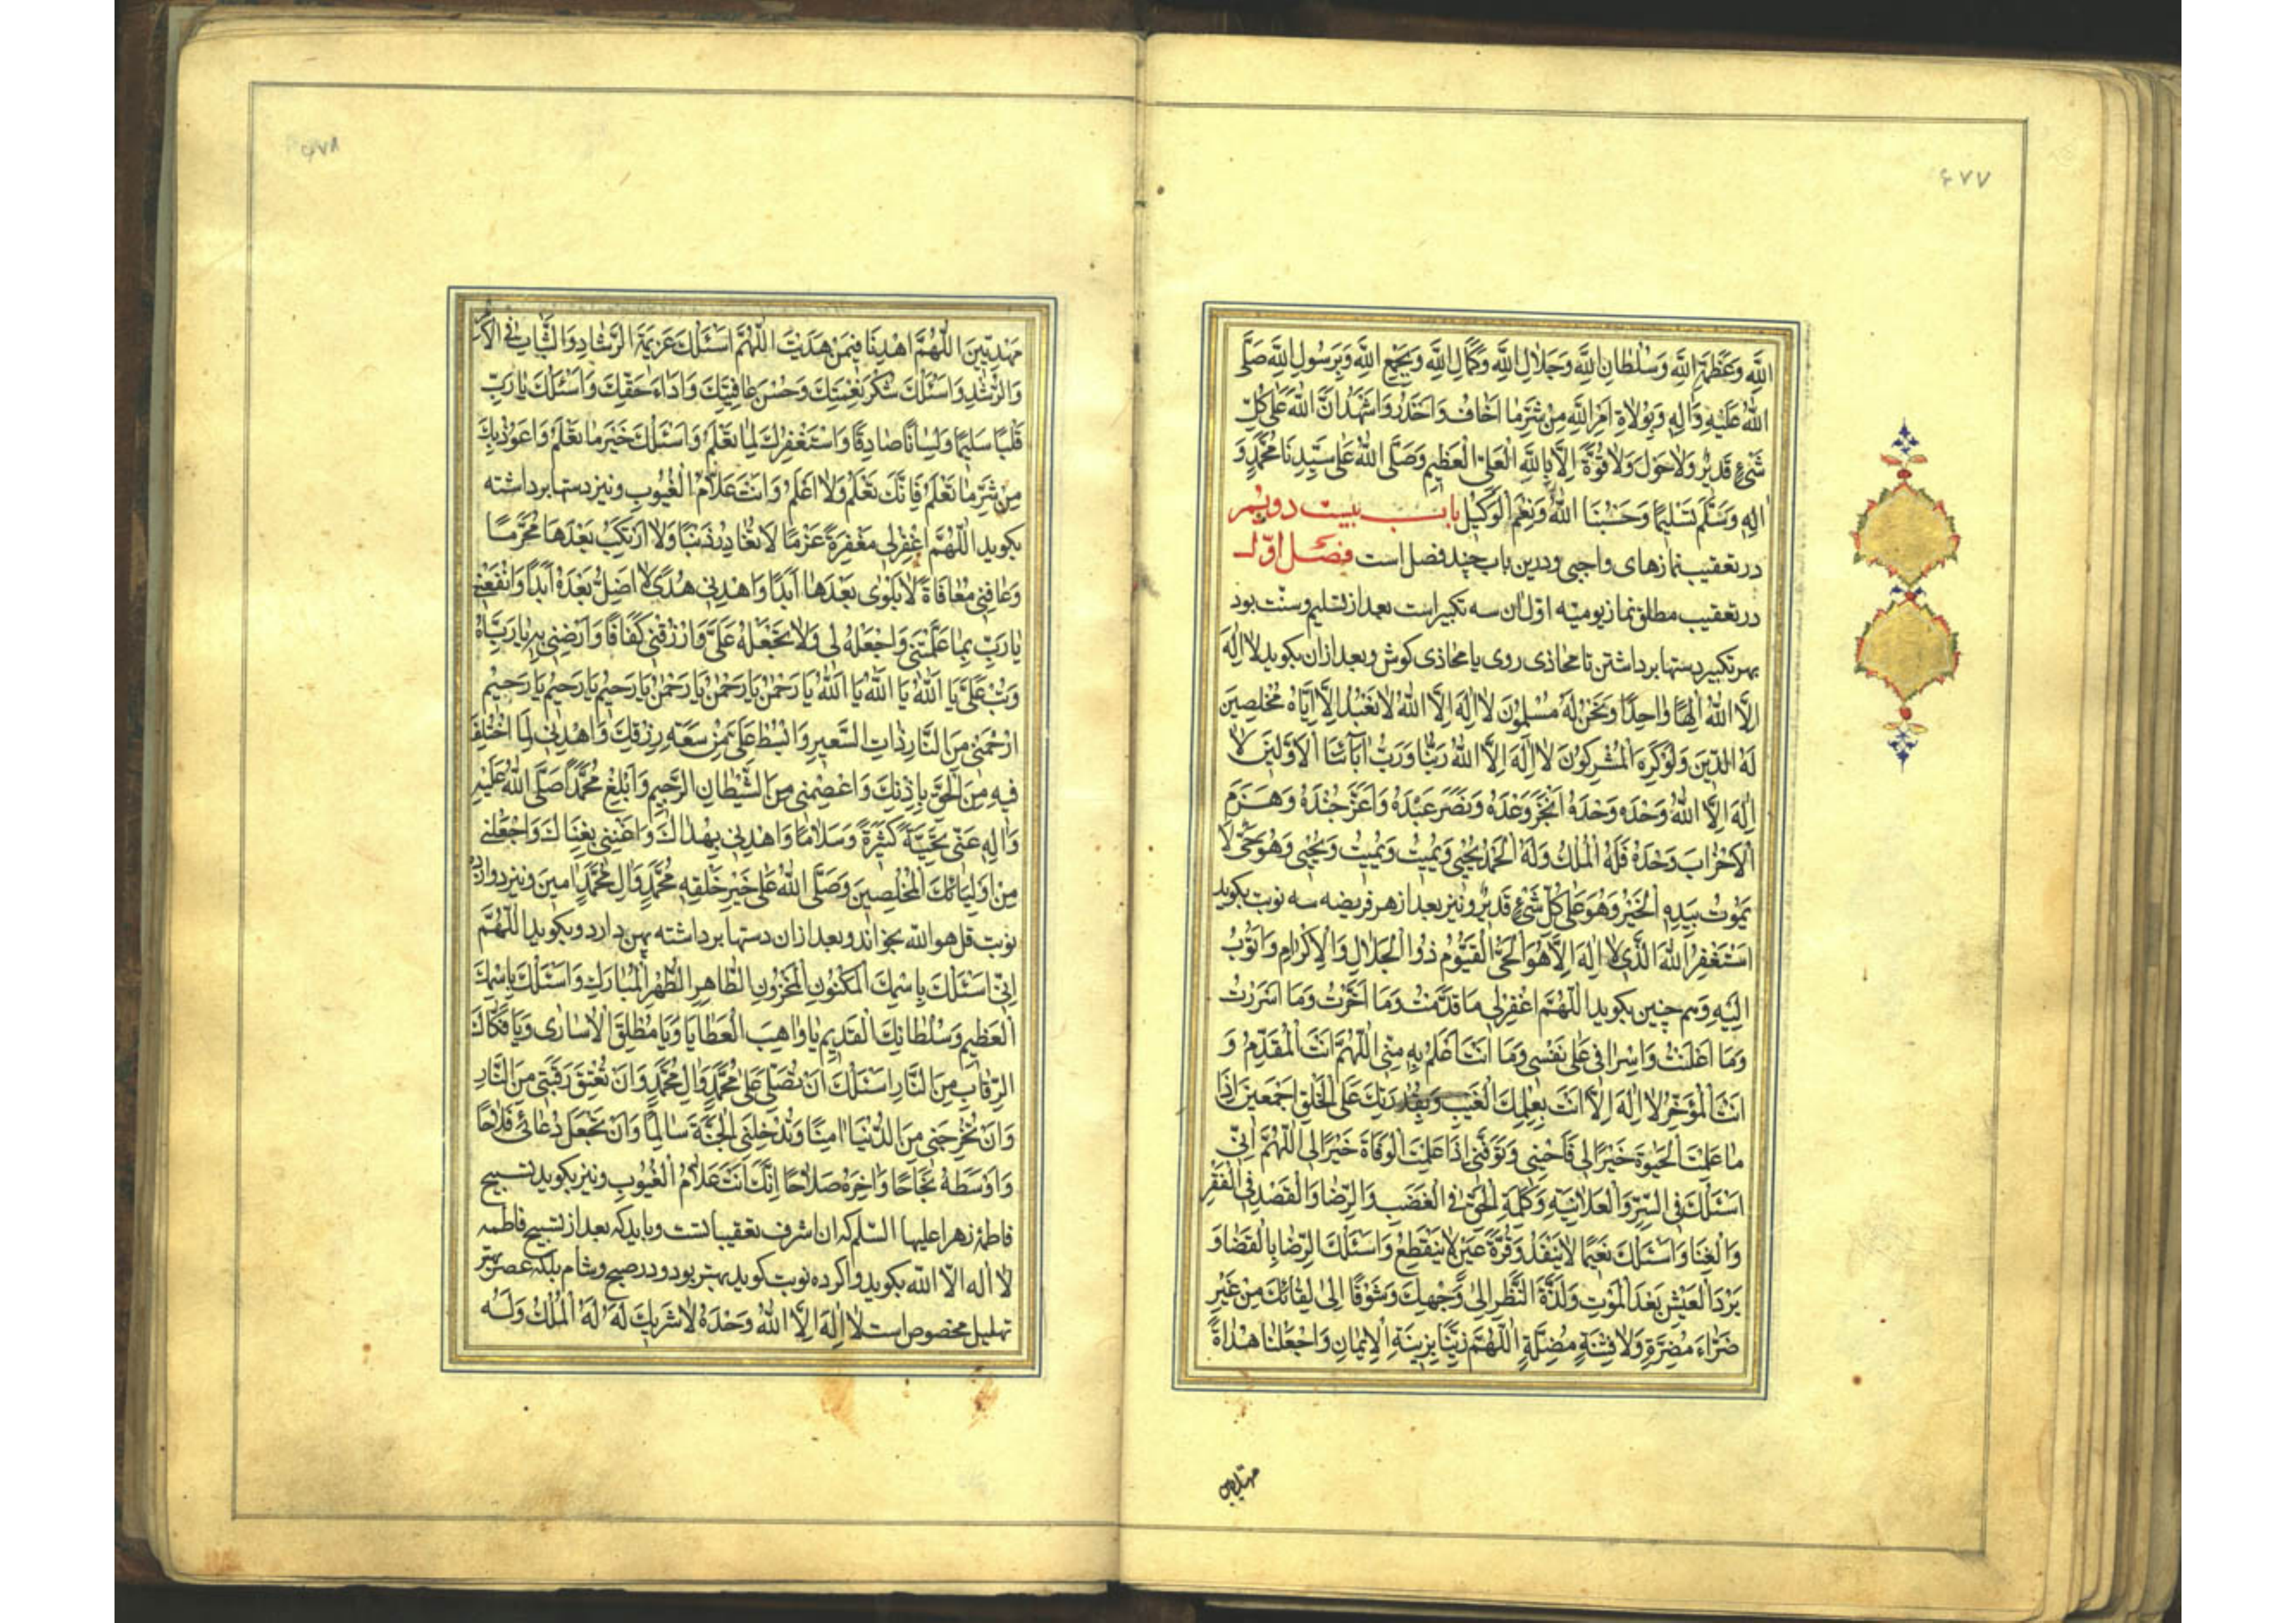 ۶۷۷
اللَّهِ وَعَظَمَةِ اللَّهِ وَسُلْطَانِ اللَّهِ وَجَلَالِ اللَّهِ وَكَمَالِ اللَّهِ وَبِجَمْعِ اللَّهِ وَبِرَسُولِ اللَّهِ صَلَّى
اللَّهُ عَلَيْهِ وَآلِهِ وَبِوُلَاةِ اَمْرِ اللَّهِ مِنْ شَرِّ مَا اَخَافُ وَاَحْذَرُ وَاَشْهَدُ اَنَّ اللَّهَ عَلَى كُلِّ
شَيْءٍ قَدِيرٌ وَلَا حَوْلَ وَلَا قُوَّةَ اِلَّا بِاللَّهِ الْعَلِيِّ الْعَظِيمِ وَصَلَّى اللَّهُ عَلَى سَيِّدِنَا مُحَمَّدٍ وَ
آلِهِ وَسَلَّمَ تَسْلِيمًا وَحَسْبُنَا اللَّهُ وَنِعْمَ الْوَكِيلُ باب بیست دویم
در تعقیب نمازهای واجبی و درین باب چند فصل است فصل اوّل
در تعقیب مطلق نماز یومیه اوّل ان سه تکبیر است بعد از تسلیم و سنّت بود
بهر تکبیر دستها برداشتن تا محاذی روی یا محاذی کوش و بعد ازان بکوید لَا اِلَهَ
اِلَّا اللَّهُ اِلَهًا وَاحِدًا وَنَحْنُ لَهُ مُسْلِمُونَ لَا اِلَهَ اِلَّا اللَّهُ لَا نَعْبُدُ اِلَّا اِيَّاهُ مُخْلِصِينَ
لَهُ الدِّينَ وَلَوْ كَرِهَ الْمُشْرِكُونَ لَا اِلَهَ اِلَّا اللَّهُ رَبُّنَا وَرَبُّ آبَائِنَا الْاَوَّلِينَ لَا
اِلَهَ اِلَّا اللَّهُ وَحْدَهُ وَحْدَهُ وَحْدَهُ اَنْجَزَ وَعْدَهُ وَنَصَرَ عَبْدَهُ وَاَعَزَّ جُنْدَهُ وَهَزَمَ
الْاَحْزَابَ وَحْدَهُ فَلَهُ الْمُلْكُ وَلَهُ الْحَمْدُ يُحْيِي وَيُمِيتُ وَيُمِيتُ وَيُحْيِي وَهُوَ حَيٌّ لَا
يَمُوتُ بِيَدِهِ الْخَيْرُ وَهُوَ عَلَى كُلِّ شَيْءٍ قَدِيرٌ و نیز بعد از هر فریضه سه نوبت بکوید
اَسْتَغْفِرُ اللَّهَ الَّذِي لَا اِلَهَ اِلَّا هُوَ الْحَيُّ الْقَيُّومُ ذُو الْجَلَالِ وَالْاِكْرَامِ وَاَتُوبُ
اِلَيْهِ و هم چنین بکوید اَللَّهُمَّ اغْفِرْ لِي مَا قَدَّمْتُ وَمَا اَخَّرْتُ وَمَا اَسْرَرْتُ
وَمَا اَعْلَنْتُ وَاِسْرَافِي عَلَى نَفْسِي وَمَا اَنْتَ اَعْلَمُ بِهِ مِنِّي اَللَّهُمَّ اَنْتَ الْمُقَدِّمُ وَ
اَنْتَ الْمُؤَخِّرُ لَا اِلَهَ اِلَّا اَنْتَ بِعِلْمِكَ الْغَيْبَ وَبِقُدْرَتِكَ عَلَى الْخَلْقِ اَجْمَعِينَ اِذَا
مَا عَلِمْتَ الْحَيٰوةَ خَيْرًا لِي فَاَحْيِنِي وَتَوَفَّنِي اِذَا عَلِمْتَ الْوَفَاةَ خَيْرًا لِي اَللَّهُمَّ اِنِّي
اَسْئَلُكَ فِي السِّرِّ وَالْعَلَانِيَةِ وَكَلِمَةَ الْحَقِّ فِي الْغَضَبِ وَالرِّضَا وَالْقَصْدَ فِي الْفَقْرِ
وَالْغِنَا وَاَسْئَلُكَ نَعِيمًا لَا يَنْفَدُ وَقُرَّةَ عَيْنٍ لَا يَنْقَطِعُ وَاَسْئَلُكَ الرِّضَا بِالْقَضَا وَ
بَرْدَ الْعَيْشِ بَعْدَ الْمَوْتِ وَلَذَّةَ النَّظَرِ اِلَى وَجْهِكَ وَشَوْقًا اِلَى لِقَائِكَ مِنْ غَيْرِ
ضَرَّاءَ مُضِرَّةٍ وَلَا فِتْنَةٍ مُضِلَّةٍ اَللَّهُمَّ زَيِّنَّا بِزِينَةِ الْاِيمَانِ وَاجْعَلْنَا هُدَاةً
مهتدین
۶۷۸
مَهْدِيِّينَ اَللَّهُمَّ اهْدِنَا فِيمَنْ هَدَيْتَ اَللَّهُمَّ اَسْئَلُكَ عَزِيمَةَ الرَّشَادِ وَالثَّبَاتَ فِي الْاَمْرِ
وَالرُّشْدِ وَاَسْئَلُكَ شُكْرَ نِعْمَتِكَ وَحُسْنَ عَافِيَتِكَ وَاَدَاءَ حَقِّكَ وَاَسْئَلُكَ يَا رَبِّ
قَلْبًا سَلِيمًا وَلِسَانًا صَادِقًا وَاَسْتَغْفِرُكَ لِمَا تَعْلَمُ وَاَسْئَلُكَ خَيْرَ مَا تَعْلَمُ وَاَعُوذُ بِكَ
مِنْ شَرِّ مَا تَعْلَمُ فَاِنَّكَ تَعْلَمُ وَلَا اَعْلَمُ وَاَنْتَ عَلَّامُ الْغُيُوبِ و نیز دستها برداشته
بکوید اَللَّهُمَّ اغْفِرْ لِي مَغْفِرَةً عَزْمًا لَا تُغَادِرُ ذَنْبًا وَلَا اَرْتَكِبُ بَعْدَهَا مُحَرَّمًا
وَعَافِنِي مُعَافَاةً لَا بَلْوَى بَعْدَهَا اَبَدًا وَاهْدِنِي هُدًى لَا اَضِلُّ بَعْدَهُ اَبَدًا وَانْفَعْنِي
يَا رَبِّ بِمَا عَلَّمْتَنِي وَاجْعَلْهُ لِي وَلَا تَجْعَلْهُ عَلَيَّ وَارْزُقْنِي كَفَافًا وَاَرْضِنِي بِهِ يَا رَبَّاهُ
وَتُبْ عَلَيَّ يَا اَللَّهُ يَا اَللَّهُ يَا اَللَّهُ يَا رَحْمٰنُ يَا رَحْمٰنُ يَا رَحْمٰنُ يَا رَحِيمُ يَا رَحِيمُ يَا رَحِيمُ
اِرْحَمْنِي مِنَ النَّارِ ذَاتِ السَّعِيرِ وَابْسُطْ عَلَيَّ مِنْ سَعَةِ رِزْقِكَ وَاهْدِنِي لِمَا اخْتُلِفَ
فِيهِ مِنَ الْحَقِّ بِاِذْنِكَ وَاعْصِمْنِي مِنَ الشَّيْطَانِ الرَّجِيمِ وَاَبْلِغْ مُحَمَّدًا صَلَّى اللَّهُ عَلَيْهِ
وَآلِهِ عَنِّي تَحِيَّةً كَثِيرَةً وَسَلَامًا وَاهْدِنِي بِهُدَاكَ وَاغْنِنِي بِغِنَاكَ وَاجْعَلْنِي
مِنْ اَوْلِيَائِكَ الْمُخْلِصِينَ وَصَلَّى اللَّهُ عَلَى خَيْرِ خَلْقِهِ مُحَمَّدٍ وَآلِ مُحَمَّدٍ اٰمِينَ و نیز دوازده
نوبت قل هو الله بخواند و بعد ازان دستها برداشته پهن دارد و بکوید اَللَّهُمَّ
اِنِّي اَسْئَلُكَ بِاسْمِكَ الْمَكْنُونِ الْمَخْزُونِ الطَّاهِرِ الطُّهْرِ الْمُبَارَكِ وَاَسْئَلُكَ بِاسْمِكَ
الْعَظِيمِ وَسُلْطَانِكَ الْقَدِيمِ يَا وَاهِبَ الْعَطَايَا وَيَا مُطْلِقَ الْاُسَارَى وَيَا فَكَّاكَ
الرِّقَابِ مِنَ النَّارِ اَسْئَلُكَ اَنْ تُصَلِّيَ عَلَى مُحَمَّدٍ وَآلِ مُحَمَّدٍ وَاَنْ تُعْتِقَ رَقَبَتِي مِنَ النَّارِ
وَاَنْ تُخْرِجَنِي مِنَ الدُّنْيَا اٰمِنًا وَتُدْخِلَنِي الْجَنَّةَ سَالِمًا وَاَنْ تَجْعَلَ دُعَائِي فَلَاحًا
وَاَوْسَطَهُ نَجَاحًا وَآخِرَهُ صَلَاحًا اِنَّكَ اَنْتَ عَلَّامُ الْغُيُوبِ و نیز بکوید تسبیح
فاطمۀ زهرا علیها السّلم که ان اشرف تعقیباتست و باید که بعد از تسبیح فاطمه
لا اله الّا الله بکوید و اکر ده نوبت کوید بهتر بود و در صبح و شام بلکه عصر نیز
تهلیل مخصوص است لَا اِلَهَ اِلَّا اللَّهُ وَحْدَهُ لَا شَرِيكَ لَهُ لَهُ الْمُلْكُ وَلَهُ